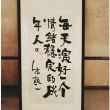 每天演好一个
情绪稳定的成
年人。